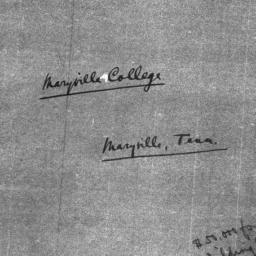 Maryville College
Maryville, Tenn.